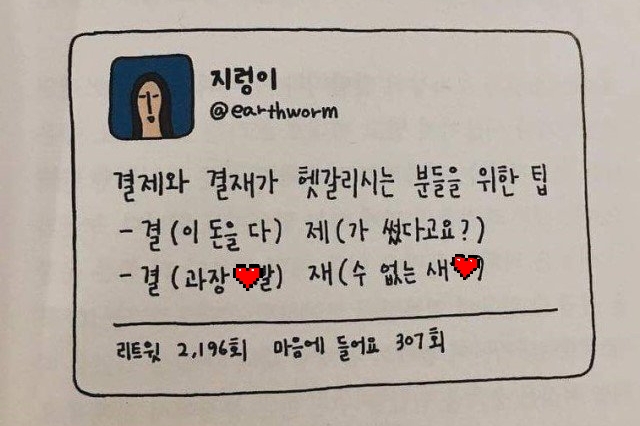 지렁이
@earthworm
결제와 결재가 헷갈리시는 분들을 위한 팁
- 결 (이 돈을 다) 제 (가 썼다고요?)
- 결 (과장❤️발) 재 (수 없는 새❤️)
리트윗 2,196회 마음에 들어요 307회